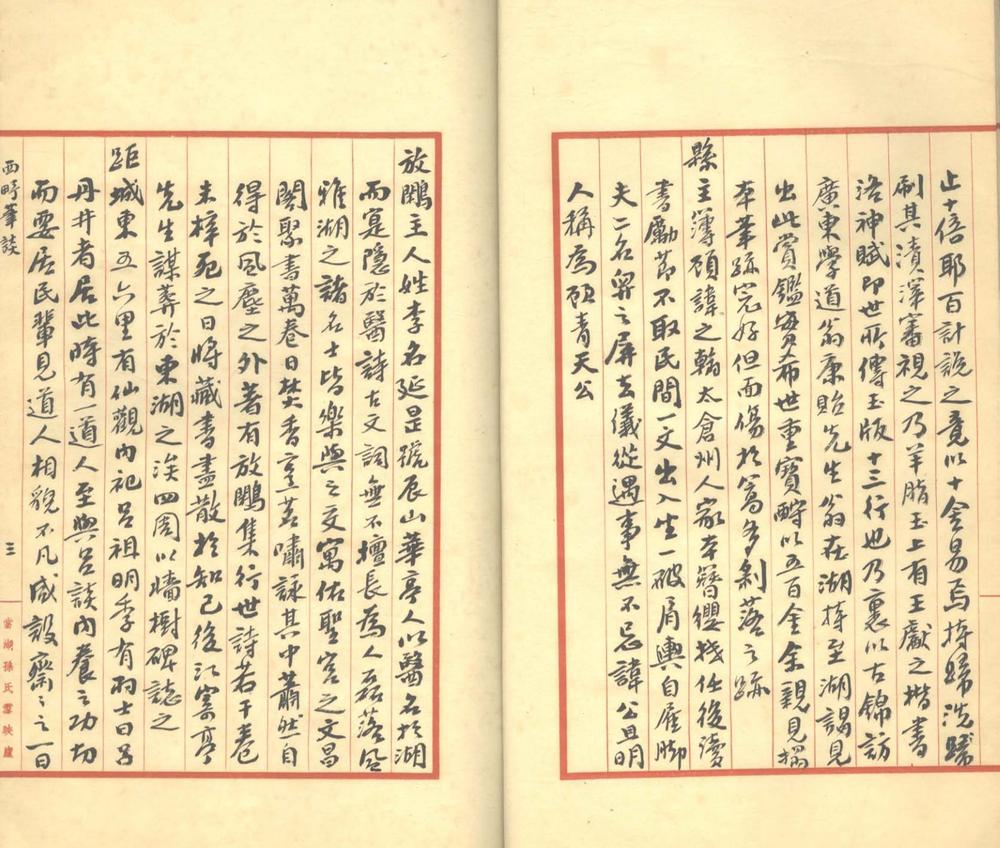 止十倍耶百計説之竟以十金易焉持歸洗滌
刷其漬深審視之乃羊脂玉上有王獻之楷書
洛神賦即世所傳玉版十三行也乃裹以古錦訪
廣東學道翁康飴先生翁在湖持至湖謁見
出此賞鑑實希世重寶酧以五百金余親見搨
本筆跡完好但面傷於篙多剝落之跡
縣主簿顧諱之翰太倉州人家本簪纓拔任後讀
書勵節不取民間一文出入坐一破肩輿自雇脚
夫二名舁之屏去儀從遇事無不忌諱公且明
人稱為顧青天公
放鷴主人姓李名延昰號辰山華亭人以醫名於湖
而寔隱於醫詩古文詞無不擅長為人磊落風
雅湖之諸名士皆樂與之交寓佑聖宮之文昌
閣聚書萬卷日焚香烹茗嘯詠其中蕭然自
得於風塵之外著有放鷴集行世詩若干卷
未梓死之日將藏書盡散於知己後江寄亭
先生謀葬於東湖之涘四周以墻樹碑誌之
距城東五六里有仙觀内祀呂祖明季有羽士曰呂
丹井者居此時有一道人至與呂談内養之功切
而要居民輩見道人相貌不凡咸設齋之一日
西畴筆談
三
當湖孫氏雪映廬